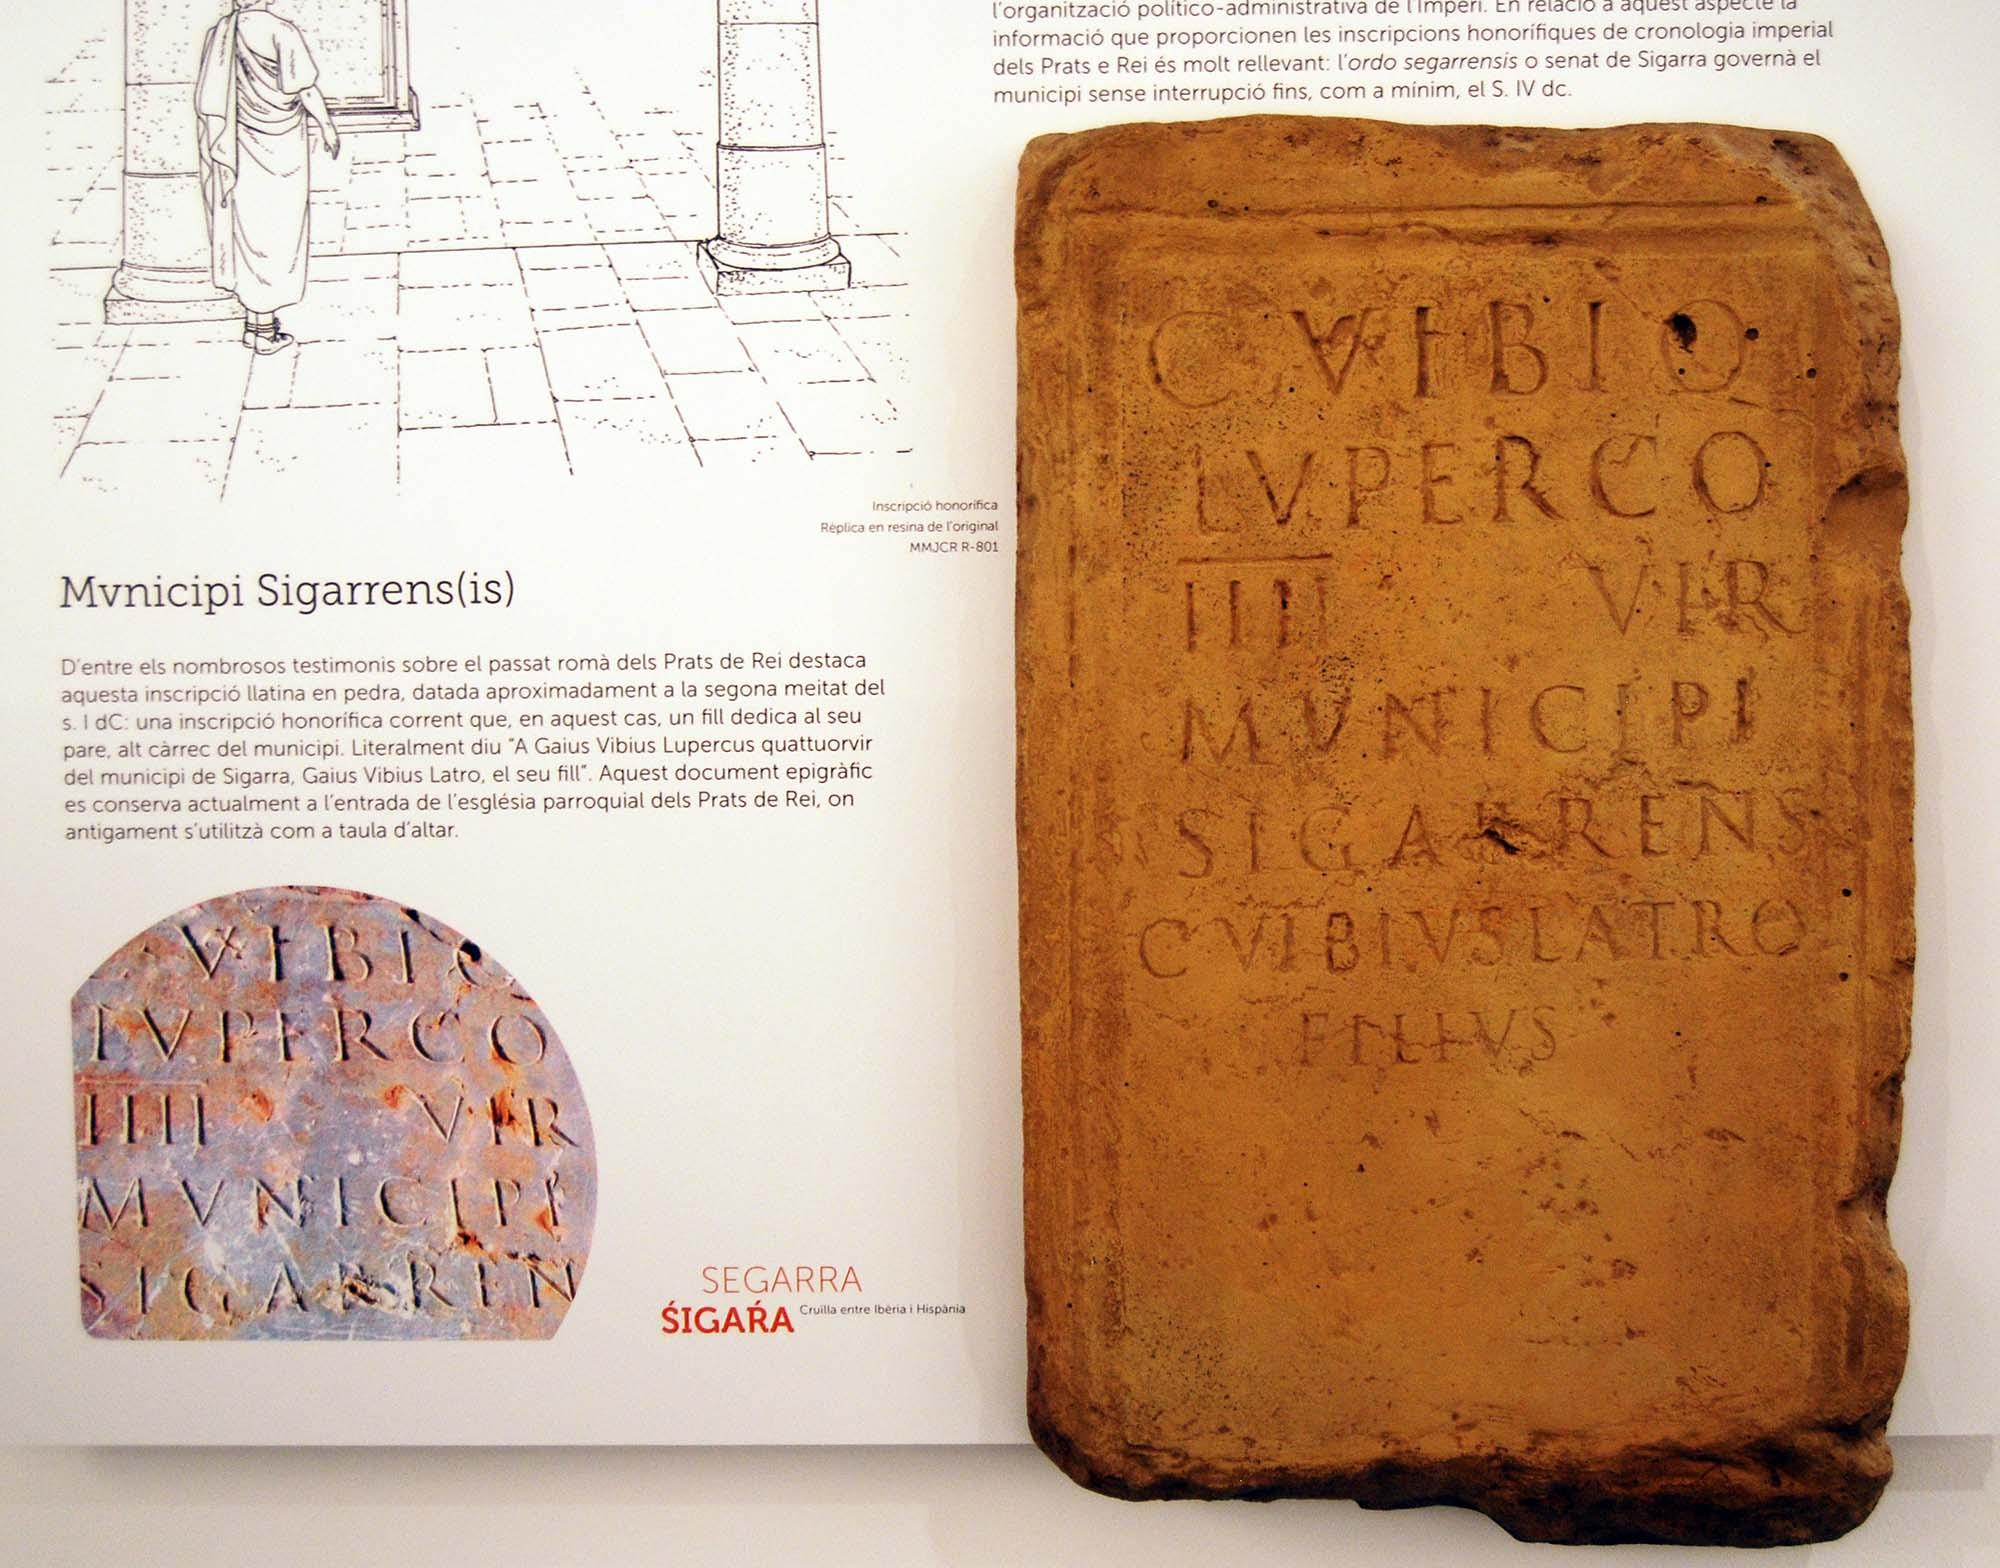 l'organització político-administrativa de l'Imperi. En relació a aquest aspecte la
informació que proporcionen les inscripcions honorífiques de cronologia imperial
dels Prats e Rei és molt rellevant: l'ordo segarrensis o senat de Sigarra governà el
municipi sense interrupció fins, com a mínim, el S. IV dc.
Inscripció honorífica
Rèplica en resina de l'original
MMJCR R-801
Mvnicipi Sigarrens(is)
D'entre els nombrosos testimonis sobre el passat romà dels Prats de Rei destaca
aquesta inscripció llatina en pedra, datada aproximadament a la segona meitat del
s. I dC: una inscripció honorífica corrent que, en aquest cas, un fill dedica al seu
pare, alt càrrec del municipi. Literalment diu "A Gaius Vibius Lupercus quattuorvir
del municipi de Sigarra, Gaius Vibius Latro, el seu fill". Aquest document epigràfic
es conserva actualment a l'entrada de l'església parroquial dels Prats de Rei, on
antigament s'utilitzà com a taula d'altar.
C VIBIO
LVPERCO
IIII VIR
MVNICIPI
SIGARREN
SEGARRA
ŚIGAŔA Cruïlla entre Ibèria i Hispània
C VIBIO
LVPERCO
IIII VIR
MVNICIPI
SIGARRENS
C VIBIVS LATRO
FILIVS